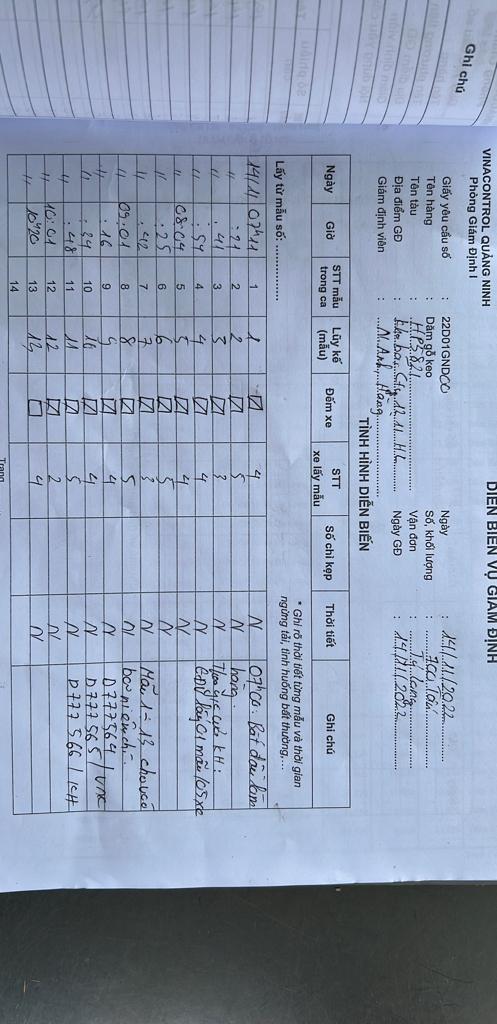 Ghi chú
VINACONTROL QUẢNG NINH
Phòng Giám Định I
DIỄN BIẾN VỤ GIÁM ĐỊNH
Giấy yêu cầu số : 22D01GND00 Ngày : 14/11/2022
Tên hàng : Dăm gỗ keo Số, khối lượng : 700 Tấn
Tên tàu : HP5821 Vận đơn :
Địa điểm GĐ : Ngày GĐ : 14/11/2022
Giám định viên : N. Anh, Hằng
TÌNH HÌNH DIỄN BIẾN
* Ghi rõ thời tiết từng mẫu và thời gian
ngừng tải, tình huống bất thường,...
Lấy từ mẫu số: ..............
Ngày Giờ STT mẫu trong ca Lũy kế (mẫu) Đếm xe STT xe lấy mẫu Số chì kẹp Thời tiết Ghi chú
14/11 07h11 1 1 4 N 07h00: Bắt đầu làm
" :21 2 2 5 N hàng.
" :41 3 3 3 N Theo y/c của KH:
" :54 4 4 4 N GĐV lấy 01 mẫu/05 xe
" 08:04 5 5 4 N
" :25 6 6 5 N
" :42 7 7 3 N Mẫu 1 - 13 cho vào
" 09:01 8 8 5 N bao niêm chì:
" :16 9 9 4 N D777564 / VNC
" :34 10 10 4 N D777565 / VNC
" :48 11 11 5 N D777566 / KH
" 10:01 12 12 2 N
" 10h20 13 13 4 N
14
Trang